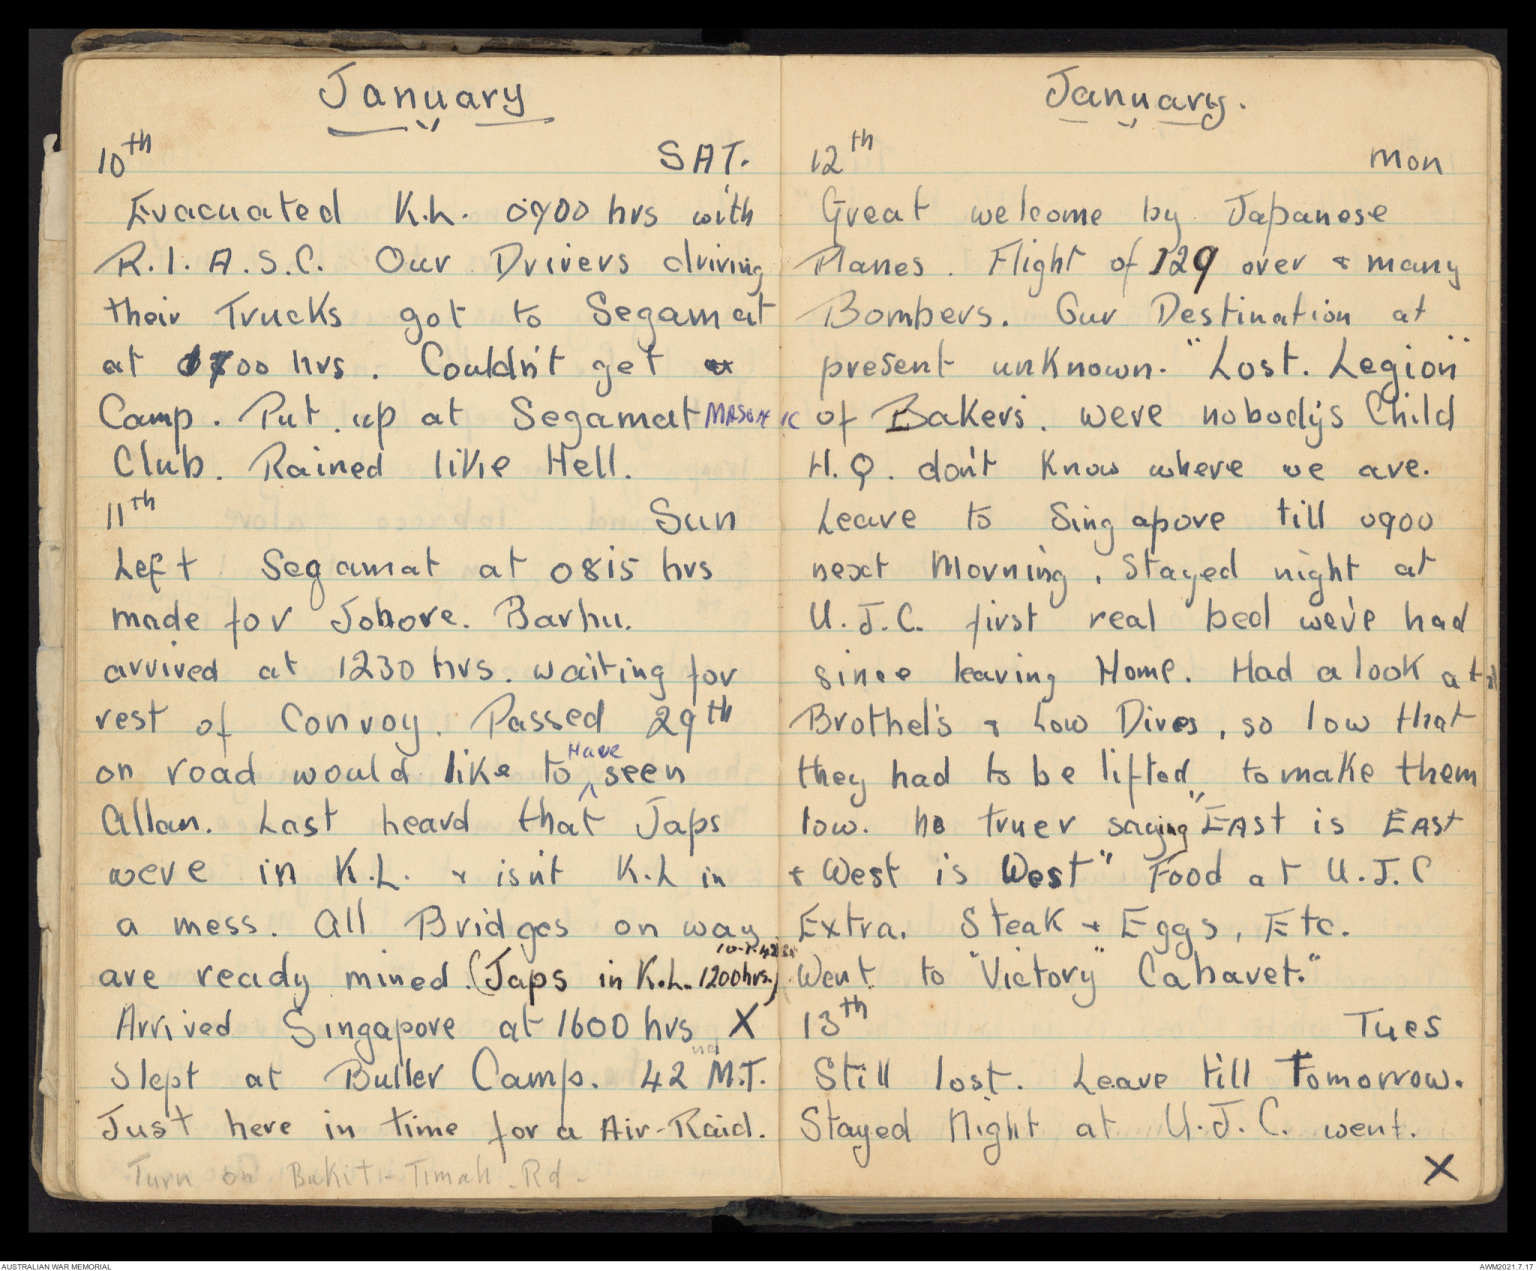 January
10th SAT.
Evacuated K.L. 0700 hrs with
R.I.A.S.C. Our Drivers driving
their Trucks got to Segamat
at 1700 hrs. Couldn't get
Camp. Put up at Segamat MASONIC
Club. Rained like Hell.
11th Sun
Left Segamat at 0815 hrs
made for Johore. Barhu.
arrived at 1230 hrs. waiting for
rest of Convoy. Passed 29th
on road would like to Have seen
Allan. Last heard that Japs
were in K.L. & isn't K.L in
a mess. All Bridges on way
are ready mined. (Japs in K.L. 1200hrs. 10-1-42)
Arrived Singapore at 1600 hrs X
Slept at Buller Camp. 42nd M.T.
Just here in time for a Air-Raid.
Turn on Bukit-Timah. Rd-
January.
12th Mon
Great welcome by Japanese
Planes. Flight of 129 over & many
Bombers. Our Destination at
present unknown. "Lost. Legion"
of Bakers. were nobody's Child
H.Q. don't know where we are.
Leave to Singapore till 0900
next Morning. Stayed night at
U.J.C. first real bed we've had
since leaving Home. Had a look at
Brothel's & Low Dives, so low that
they had to be lifted to make them
low. no truer saying "EAst is EAst
& West is West" Food at U.J.C
Extra. Steak & Eggs, Etc.
Went to "Victory" Cabaret."
13th Tues
Still lost. Leave till Tomorrow.
Stayed Night at U.J.C. went.
X
AUSTRALIAN WAR MEMORIAL
AWM2021.7.17